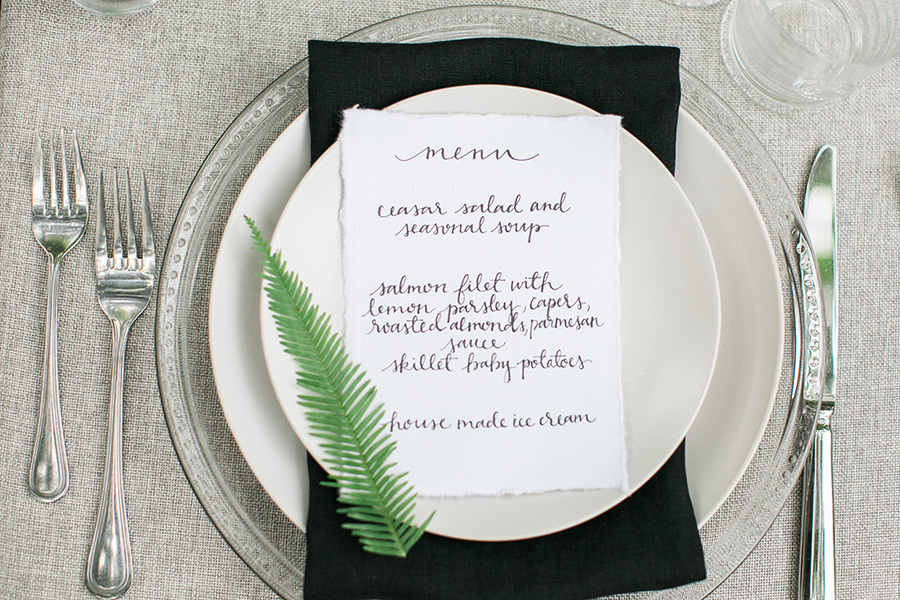 menu
ceasar salad and
seasonal soup
salmon filet with
lemon, parsley, capers,
roasted almonds, parmesan
sauce
skillet baby potatoes
house made ice cream